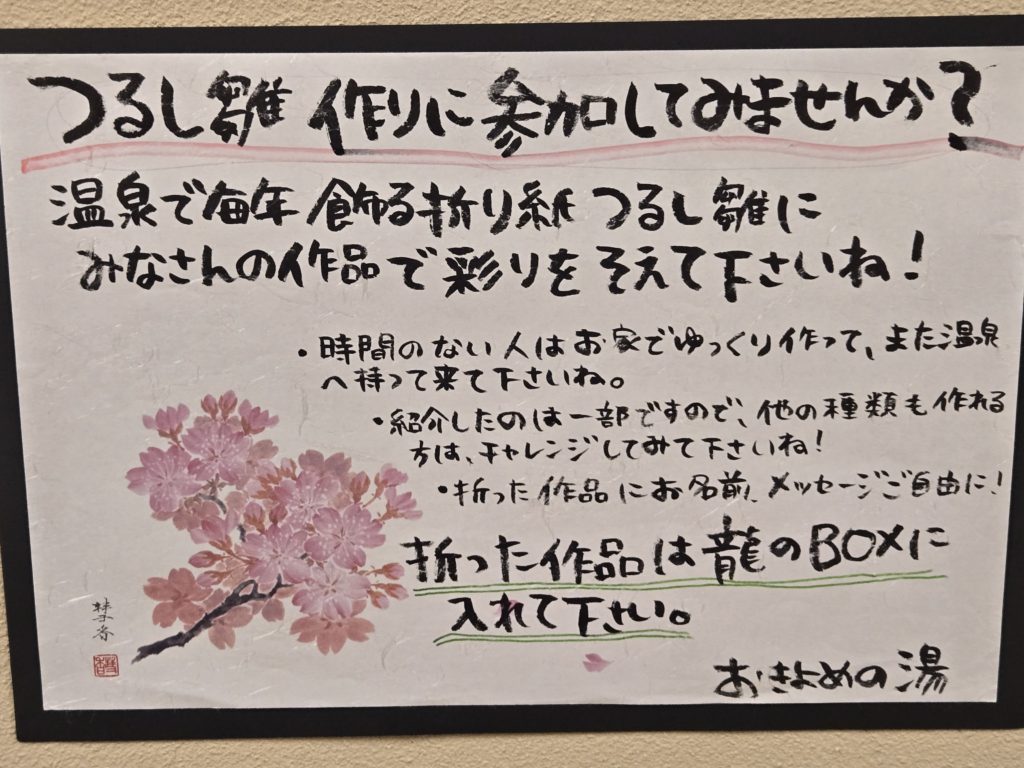 つるし雛 作りに参加してみませんか？
温泉で毎年 飾る折り紙 つるし雛に
みなさんの作品で彩りをそえて下さいね！
・時間のない人はお家でゆっくり作って、また温泉
へ持って来て下さいね。
・紹介したのは一部ですので、他の種類も作れる
方は、チャレンジしてみて下さいね！
・折った作品にお名前、メッセージご自由に！
折った作品は龍のBOXに
入れて下さい。
おきよめの湯